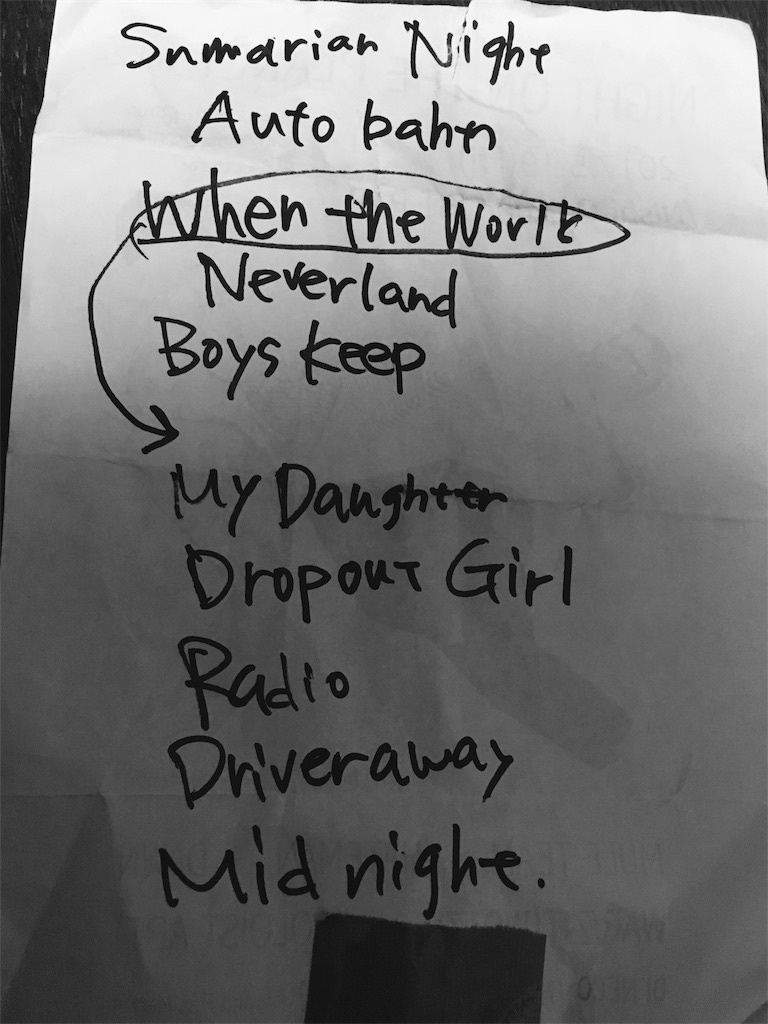 Snmarian Night
Auto bahn
When the World
Neverland
Boys keep
My Daughter
Dropout Girl
Radio
Driveraway
Mid night.